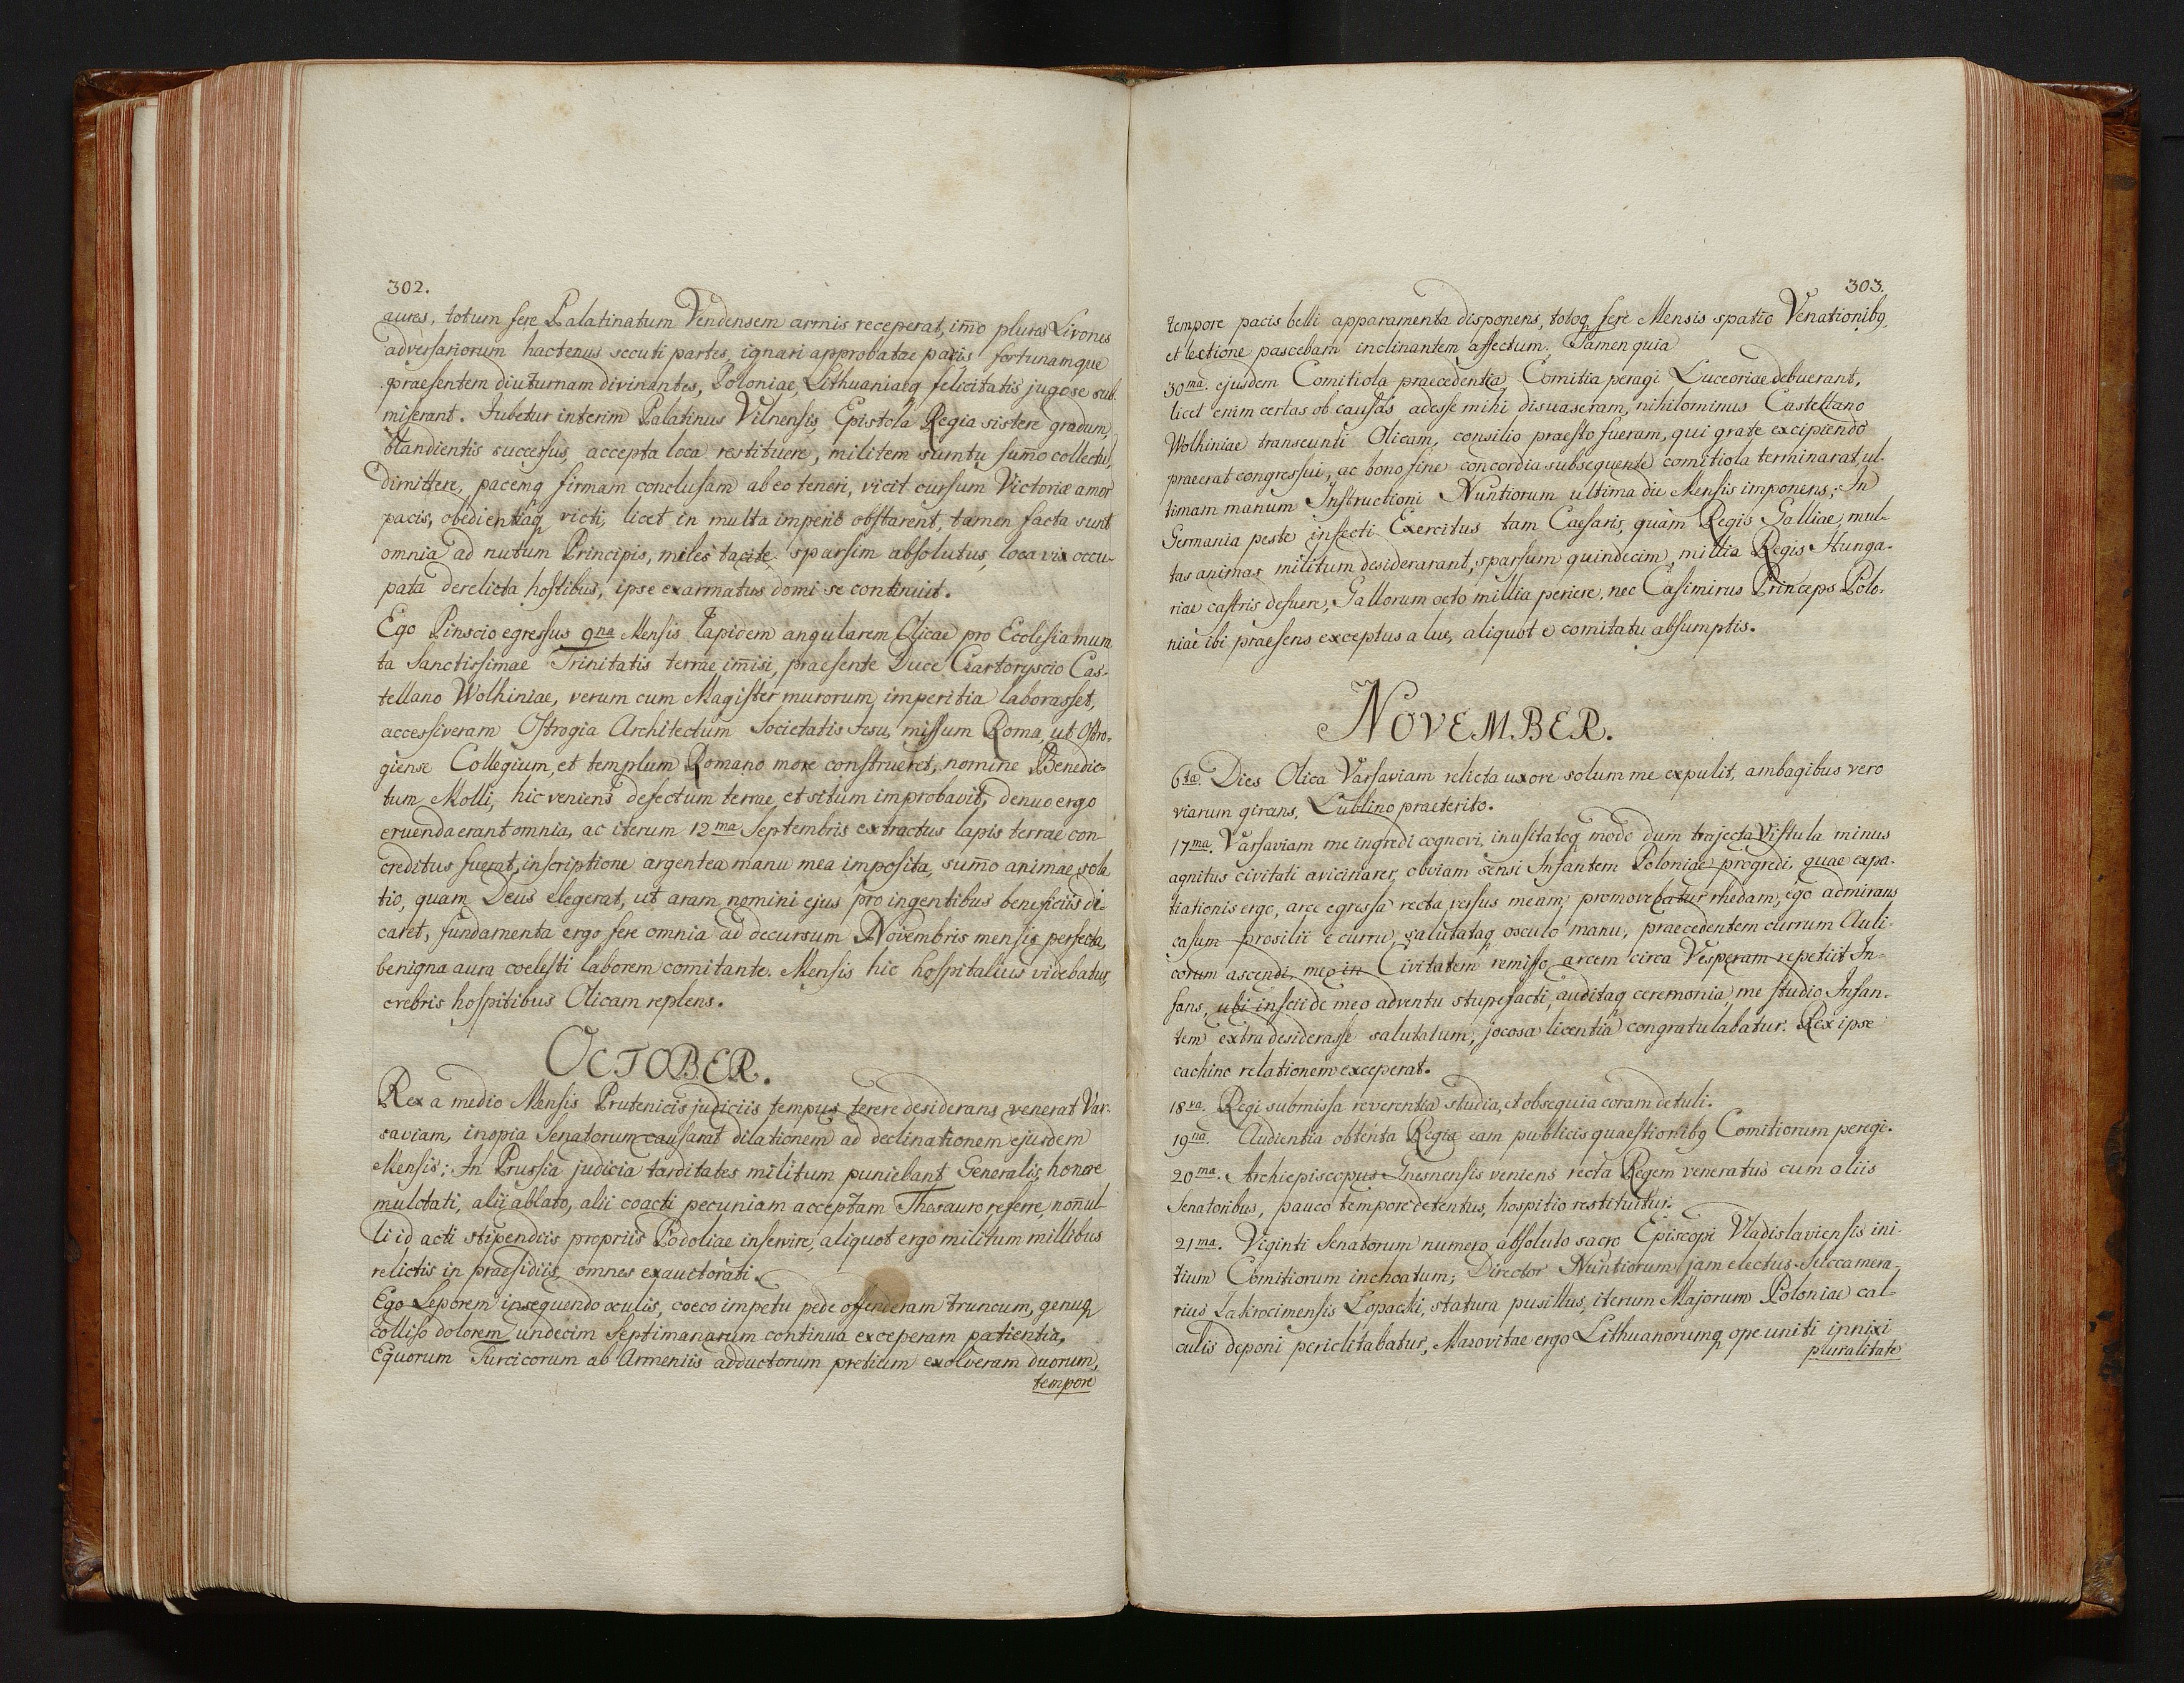 302.
aures, totum fere Palatinatum Vendensem armis receperat, im̄o plures Livones
adversariorum hactenus secuti partes, ignari approbatae pacis fortunamque
praesentem diuturnam divinantes, Poloniae, Lithuaniaeq felicitatis jugo se sub-
miserant. Jubetur interim Palatinus Vilnensis, Epistola Regia sistere gradum,
blandientis successus, accepta loca restituere, militem sumtu sum̄o collectū,
dimittere, pacemq firmam conclusam ab eo teneri, vicit cursum Victoriae amor
pacis, obedientiaq victi, licet in multa imperio obstarent, tamen facta sunt
omnia ad nutum Principis, miles tacite sparsim absolutus, loca vix occu-
pata derelicta hostibus, ipse exarmatus domi se continuit.
Ego Pinscio egressus 9na Mensis Lapidem angularem Olicae pro Ecclesia mum
ta Sanctissimae Trinitatis terrae im̄isi, praesente Duce Czartoryscio Cas-
tellano Wolhiniae, verum cum Magister murorum imperitia laborasset,
accessiveram Ostrogia Architectum Societatis Jesu, missum Roma, ut Ostro-
giense Collegium, et templum Romano more construeret, nomine Benedic-
tum Molli, hic veniens defectum terrae, et situm improbavit, denuo ergo
eruenda erant omnia, ac iterum 12ma Septembris extractus lapis terrae con-
creditus fuerat, inscriptione argentea manu mea imposita, sum̄o animae sola
tio, quam Deus elegerat, ut aram nomini ejus pro ingentibus beneficiis di-
caret, fundamenta ergo fere omnia ad decursum Novembris mensis perfecta,
benigna aura coelesti laborem comitante. Mensis hic hospitalius videbatur,
crebris hospitibus Olicam replens.
OCTOBER.
Rex a medio Mensis Prutenicis judiciis tempus terere desiderans venerat Var-
saviam, inopia Senatorum causarat dilationem ad declinationem ejusdem
Mensis; In Prussia judicia tarditates militum puniebant, Generalis, honore
mulctati, alii ablato, alii coacti pecuniam acceptam Thesauro referre, non̄ul-
li id acti stipendiis propriis Podoliae inservire, aliquot ergo militum millibus
relictis in praesidiis, omnes exauctorati.
Ego Leporem insequendo oculis, coeco impetu pede offenderam truncum, genuq
colliso dolorem undecim Septimanarum continua exceperam patientia,
Equorum Turcicorum ab Armeniis adductorum pretium exolveram duorum,
tempore
303.
tempore pacis belli apparamenta disponens, totoq fere Mensis spatio Venationibq
et lectione pascebam inclinantem affectum. Tamen quia
30ma. ejusdem Comitiola praecedentia Comitia peragi Luceoriae debuerant,
licet enim certas ob causas adesse mihi disuaseram, nihilominus Castellano
Wolhiniae transeunti Olicam, consilio praesto fueram, qui grate excipiendo
praeerat congressui, ac bono fine concordia subsequente comitiola terminarat, ul-
timam manum Instructioni Nuntiorum ultima die Mensis imponens; In
Germania peste infecti Exercitus tam Caesaris, quam Regis Galliae, mul-
tas animas militum desiderarant, sparsum quindecim millia Regis Hunga-
riae castris defuere, Gallorum octo millia periere, nec Casimirus Princeps Polo-
niae ibi praesens exceptus a lue, aliquot e comitatu absumptis.
NOVEMBER.
6ta. Dies Olica Varsaviam relicta uxore solum me expulit, ambagibus vero
viarum girans, Lublino praeterito.
17ma. Varsaviam me ingredi cognovi, inusitatoq modo dum trajecta Vistula minus
agnitus civitati avicinarer, obviam sensi Infantem Poloniae progredi, quae expa-
tiationis ergo, arce egressa recta versus meam promovebatur rhedam, ego admirans
casum prosilii e curru, salutataq osculo manu, praecedentem currum Auli-
corum ascendi, meo in Civitatem remisso, arcem circa Vesperam repetiit In-
fans, ubi inscii de meo adventu stupefacti, auditaq ceremonia, me studio Infan-
tem extra desiderasse salutatum, jocosa licentia congratulabatur. Rex ipse
cachino relationem exceperat.
18va. Regi submissa reverentia studia, et obsequia coram detuli.
19na. Audientia obtenta Regia eam publicis quaestionibq Comitiorum peregi.
20ma. Archiepiscopus Gnesnensis veniens recta Regem veneratus cum aliis
Senatoribus, pauco tempore detentus, hospitio restituitur.
21ma. Viginti Senatorum numero, absoluto sacro Episcopi Vladislaviensis ini-
tium Comitiorum inchoatum; Director Nuntiorum jam electus Succamera-
rius Zakrocimensis Lopacki, statura pusillus, iterum Majorum Poloniae cal-
culis deponi periclitabatur, Masovitae ergo Lithuanorumq ope uniti innixi
puralitate